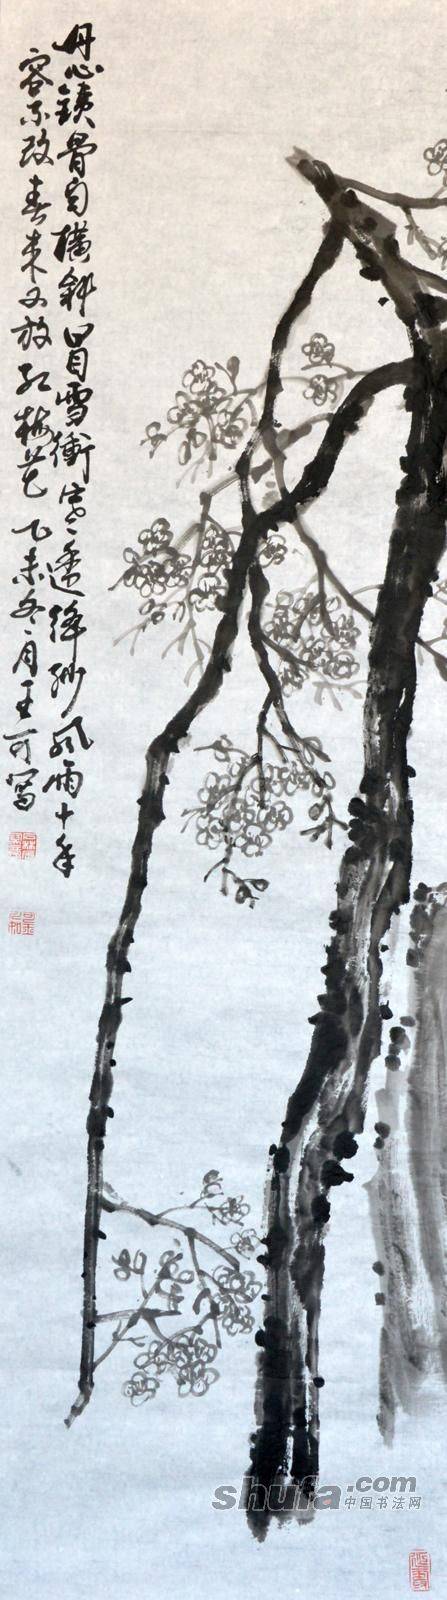 丹心铁骨自横斜冒雪冲寒透绛纱风雨十年
容不改春来又放红梅花 乙未冬月王可写
shufa.com
中国书法网